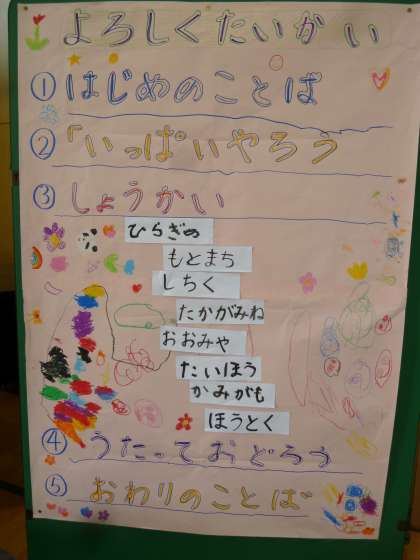 よろしくたいかい
①はじめのことば
②「いっぱいやろう
③しょうかい
ひらぎの
もとまち
しちく
たかがみね
おおみや
たいほう
かみがも
ほうとく
④うたっておどろう
⑤おわりのことば